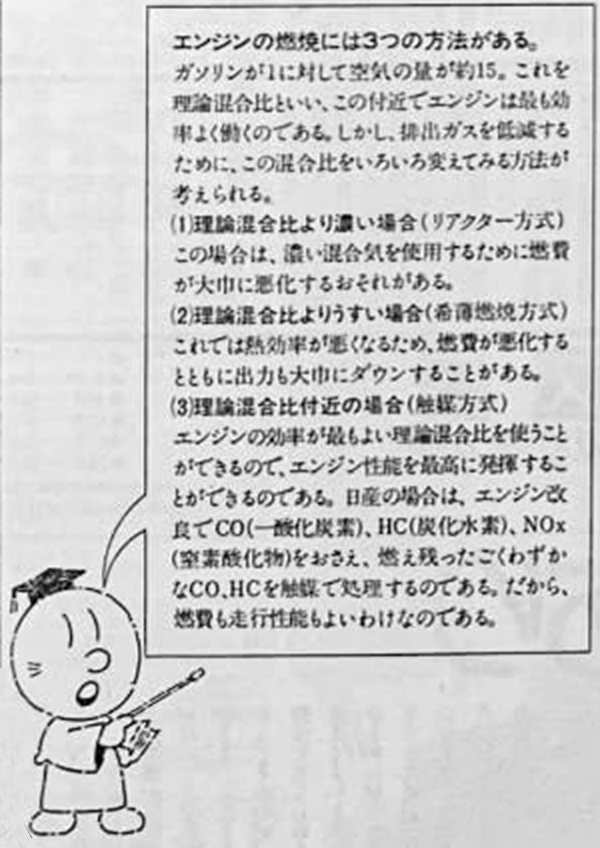 エンジンの燃焼には3つの方法がある。
ガソリンが1に対して空気の量が約15。これを
理論混合比といい、この付近でエンジンは最も効
率よく働くのである。しかし、排出ガスを低減する
ために、この混合比をいろいろ変えてみる方法が
考えられる。
(1)理論混合比より濃い場合(リアクター方式)
この場合は、濃い混合気を使用するために燃費
が大巾に悪化するおそれがある。
(2)理論混合比よりうすい場合(希薄燃焼方式)
これでは熱効率が悪くなるため、燃費が悪化する
とともに出力も大巾にダウンすることがある。
(3)理論混合比付近の場合(触媒方式)
エンジンの効率が最もよい理論混合比を使うこと
ができるので、エンジン性能を最高に発揮するこ
とができるのである。日産の場合は、エンジン改
良でCO(一酸化炭素)、HC(炭化水素)、NOx
(窒素酸化物)をおさえ、燃え残ったごくわずか
なCO、HCを触媒で処理するのである。だから、
燃費も走行性能もよいわけなのである。